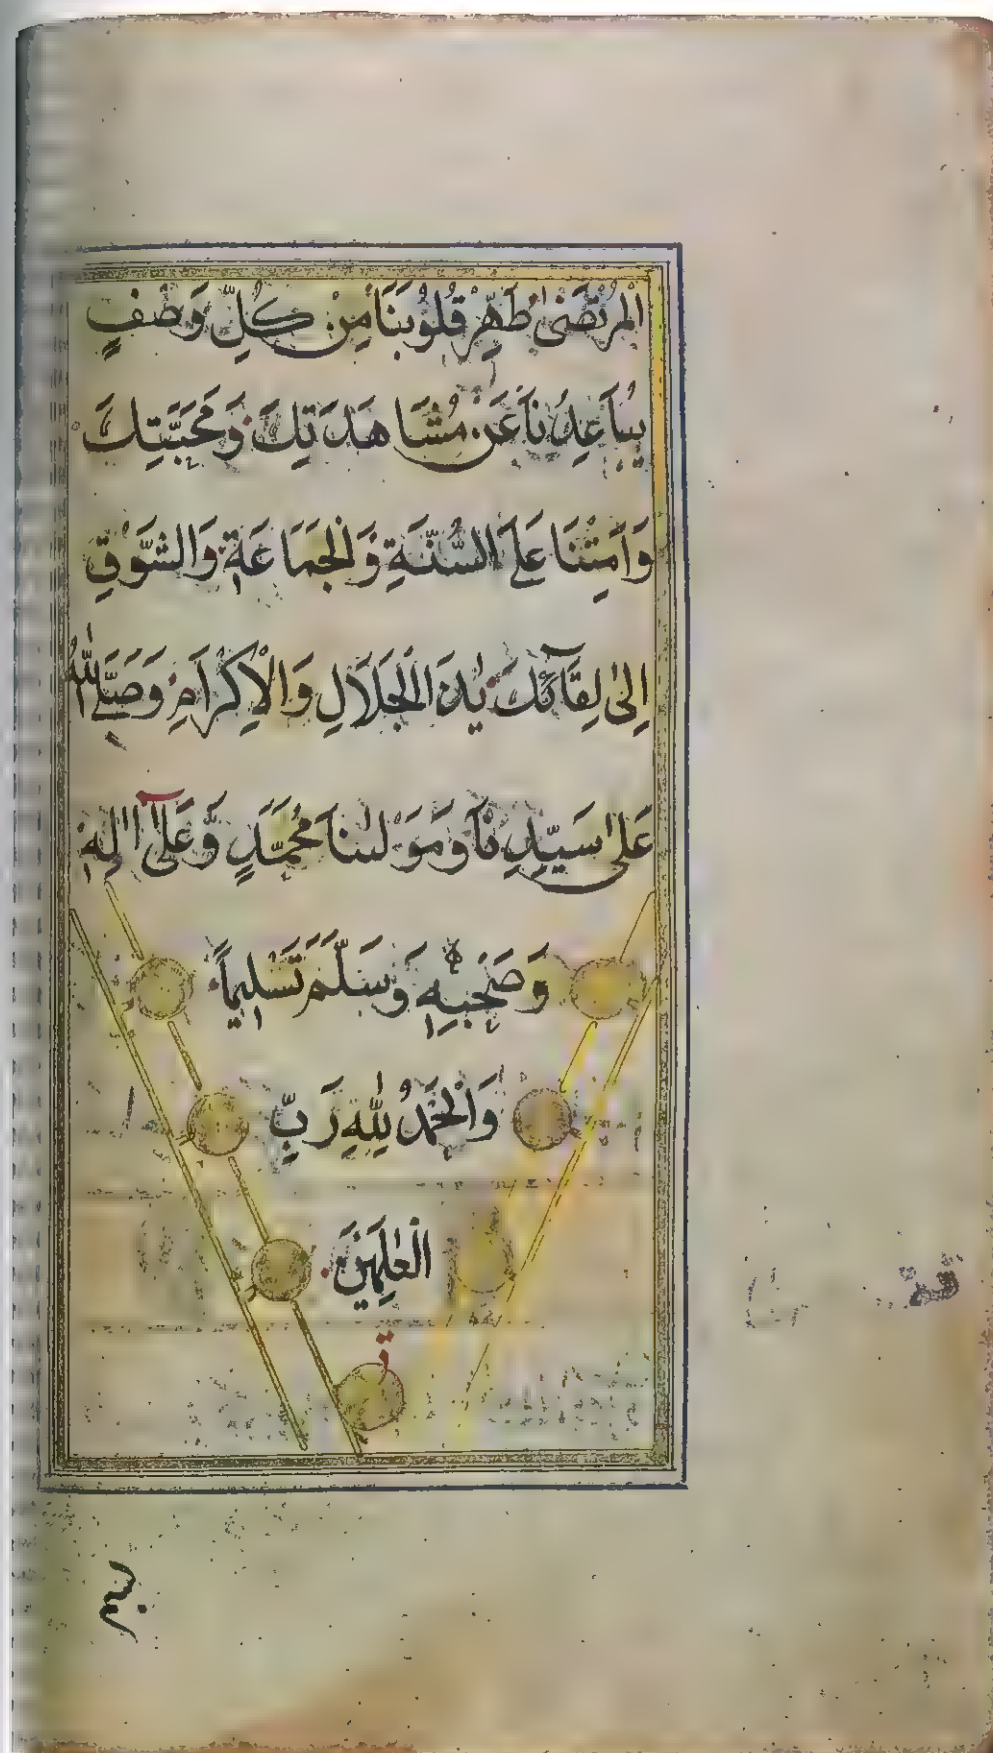 الْمُرْتَضٰى طَهِّرْ قُلُوْبَنَا مِنْ كُلِّ وَصْفٍ
يُبَاعِدُنَا عَنْ مُشَاهَدَتِكَ وَمَحَبَّتِكَ
وَاَمِتْنَا عَلَى السُّنَّةِ وَالْجَمَاعَةِ وَالشَّوْقِ
اِلٰى لِقَآئِكَ يٰذَا الْجَلَالِ وَالْاِكْرَامِ وَصَلَّى اللّٰهُ
عَلٰى سَيِّدِنَا وَمَوْلٰىنَا مُحَمَّدٍ وَّعَلٰٓى اٰلِهٖ
وَصَحْبِهٖ وَسَلَّمَ تَسْلِيْمًا
وَالْحَمْدُ لِلّٰهِ رَبِّ
الْعٰلَمِيْنَ